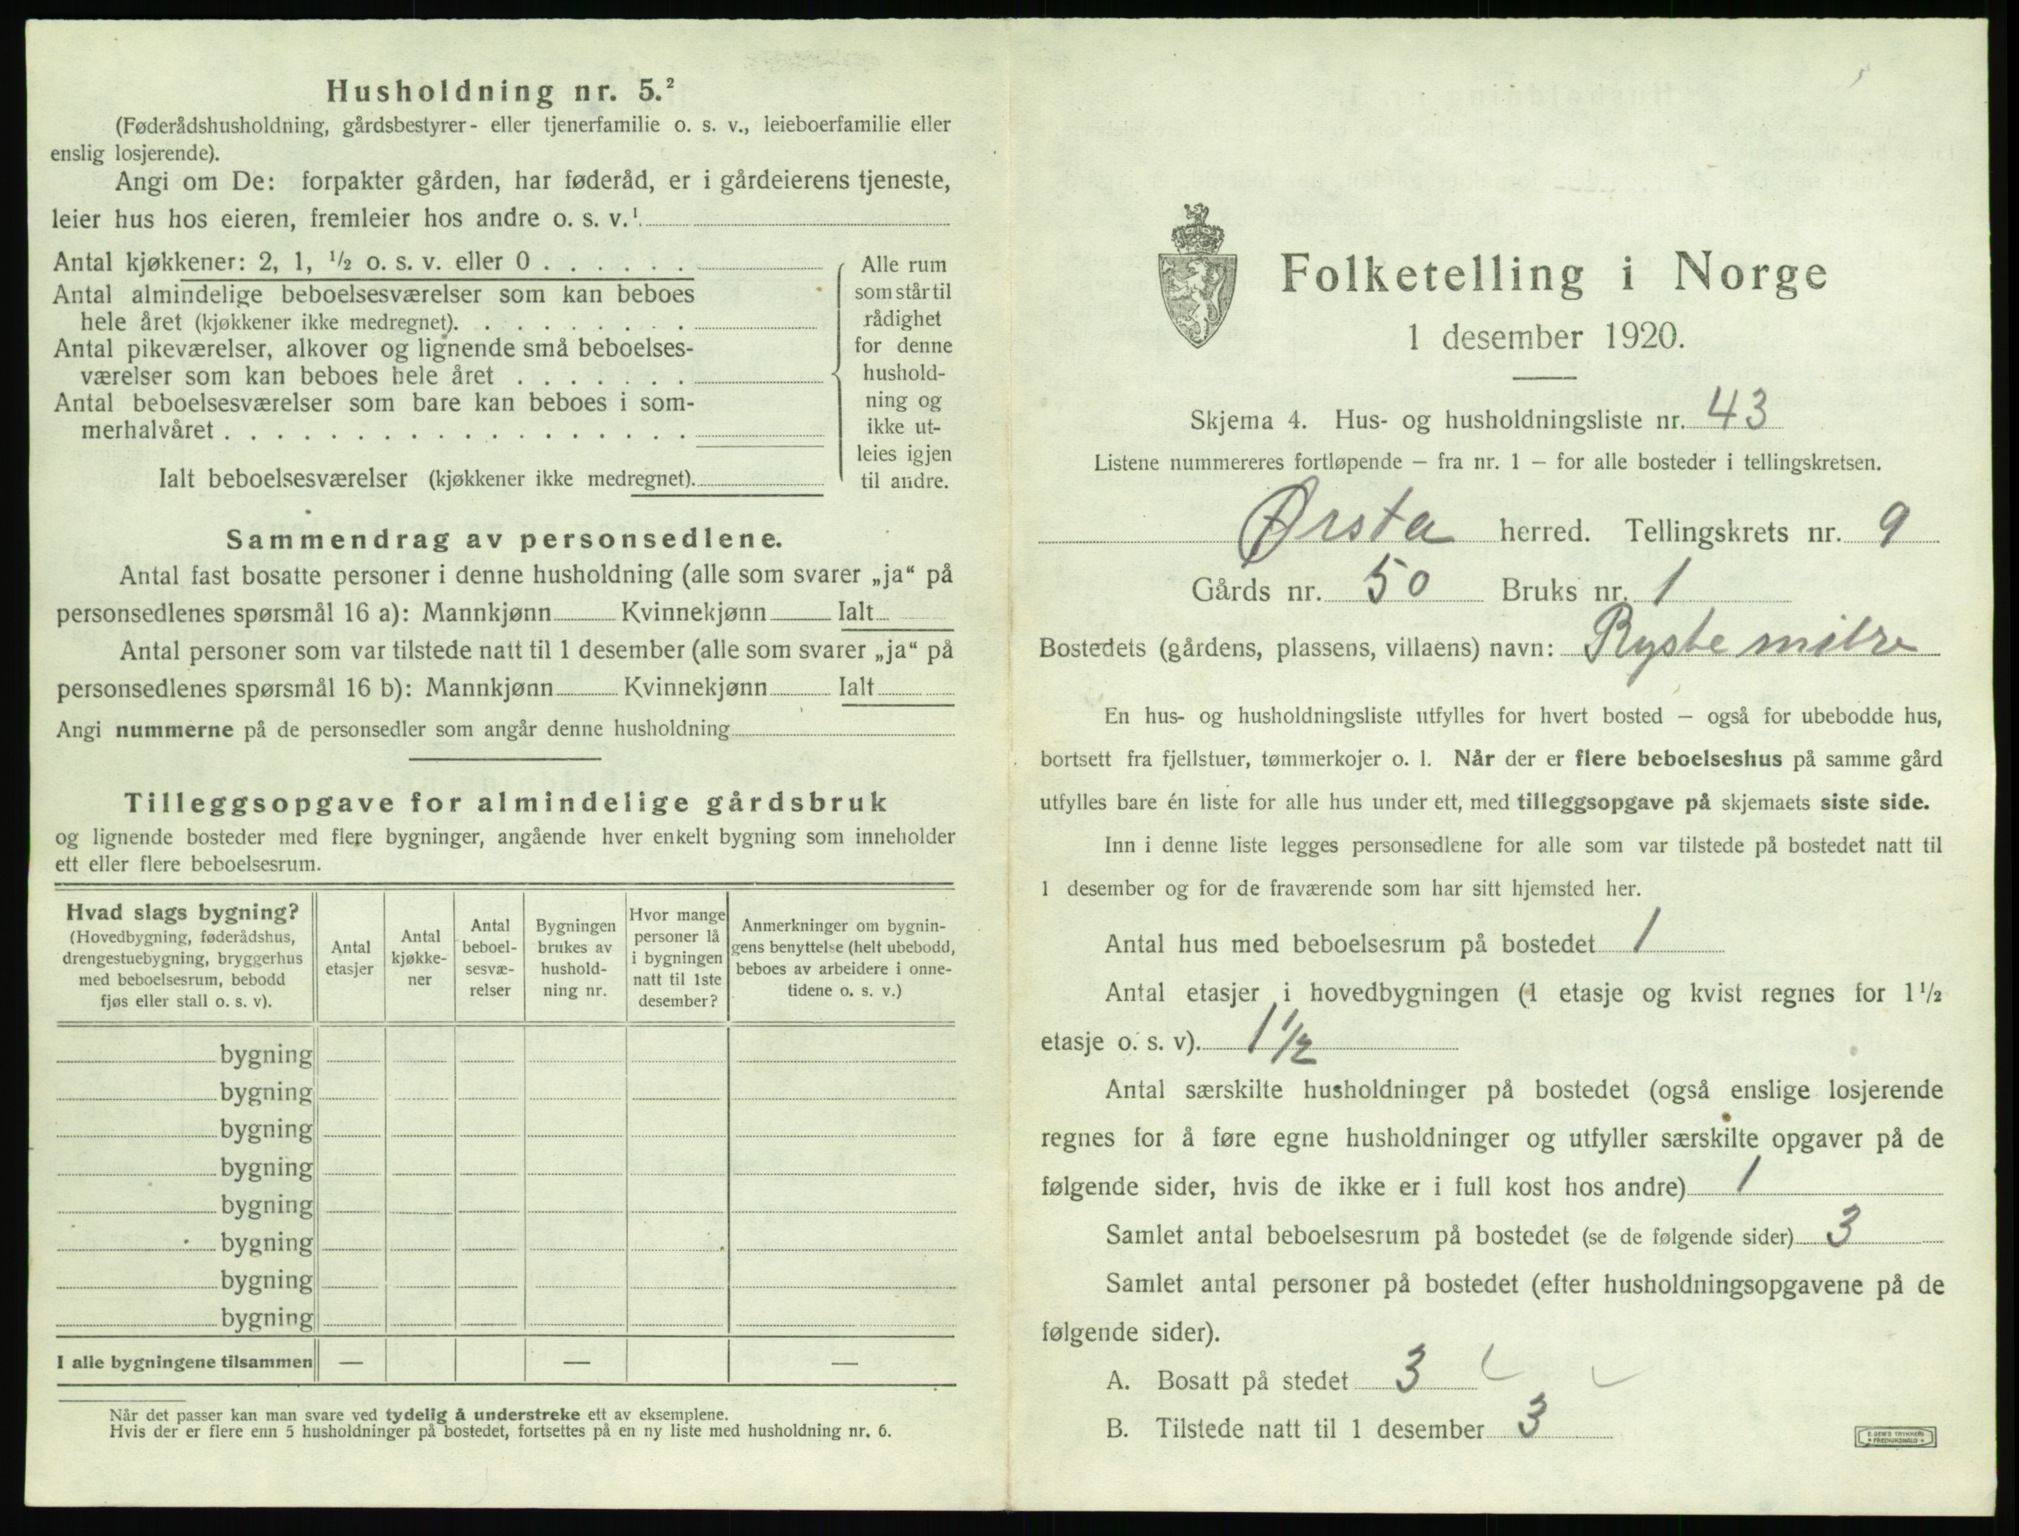 Husholdning nr. 5.²
(Føderådshusholdning, gårdsbestyrer- eller tjenerfamilie o. s. v., leieboerfamilie eller
enslig losjerende).
Angi om De: forpakter gården, har føderåd, er i gårdeierens tjeneste,
leier hus hos eieren, fremleier hos andre o. s. v.¹
Antal kjøkkener: 2, 1, ½ o. s. v. eller 0 . . . . . .
Antal almindelige beboelsesværelser som kan beboes
hele året (kjøkkener ikke medregnet). . . . . . . . .
Antal pikeværelser, alkover og lignende små beboelses-
værelser som kan beboes hele året . . . . . . .
Antal beboelsesværelser som bare kan beboes i som-
merhalvåret . . . . . . . . . . . . . . . . . .
Ialt beboelsesværelser (kjøkkener ikke medregnet).
Alle rum
som står til
rådighet
for denne
hushold-
ning og
ikke ut-
leies igjen
til andre.
Sammendrag av personsedlene.
Antal fast bosatte personer i denne husholdning (alle som svarer „ja“ på
personsedlenes spørsmål 16 a): Mannkjønn Kvinnekjønn Ialt
Antal personer som var tilstede natt til 1 desember (alle som svarer „ja“ på
personsedlenes spørsmål 16 b): Mannkjønn Kvinnekjønn Ialt
Angi nummerne på de personsedler som angår denne husholdning
Tilleggsopgave for almindelige gårdsbruk
og lignende bosteder med flere bygninger, angående hver enkelt bygning som inneholder
ett eller flere beboelsesrum.
Hvad slags bygning?
(Hovedbygning, føderådshus,
drengestuebygning, bryggerhus
med beboelsesrum, bebodd
fjøs eller stall o. s. v).
Antal
etasjer
Antal
kjøkke-
ner
Antal
beboel-
sesvæ-
relser
Bygningen
brukes av
hushold-
ning nr.
Hvor mange
personer lå
i bygningen
natt til 1ste
desember?
Anmerkninger om bygnin-
gens benyttelse (helt ubebodd,
beboes av arbeidere i onne-
tidene o. s. v.)
bygning
bygning
bygning
bygning
bygning
bygning
bygning
bygning
I alle bygningene tilsammen — — —
Når det passer kan man svare ved tydelig å understreke ett av eksemplene.
Hvis der er flere enn 5 husholdninger på bostedet, fortsettes på en ny liste med husholdning nr. 6.
Folketelling i Norge
1 desember 1920.
Skjema 4. Hus- og husholdningsliste nr. 43
Listene nummereres fortløpende – fra nr. 1 – for alle bosteder i tellingskretsen.
Ørsta herred. Tellingskrets nr. 9
Gårds nr. 50 Bruks nr. 1
Bostedets (gårdens, plassens, villaens) navn: Ryste
En hus- og husholdningsliste utfylles for hvert bosted – også for ubebodde hus,
bortsett fra fjellstuer, tømmerkojer o. l. Når der er flere beboelseshus på samme gård
utfylles bare én liste for alle hus under ett, med tilleggsopgave på skjemaets siste side.
Inn i denne liste legges personsedlene for alle som var tilstede på bostedet natt til
1 desember og for de fraværende som har sitt hjemsted her.
Antal hus med beboelsesrum på bostedet 1
Antal etasjer i hovedbygningen (1 etasje og kvist regnes for 1½
etasje o. s. v). 1½
Antal særskilte husholdninger på bostedet (også enslige losjerende
regnes for å føre egne husholdninger og utfyller særskilte opgaver på de
følgende sider, hvis de ikke er i full kost hos andre) 1
Samlet antal beboelsesrum på bostedet (se de følgende sider) 3
Samlet antal personer på bostedet (efter husholdningsopgavene på de
følgende sider).
A. Bosatt på stedet 3
B. Tilstede natt til 1 desember 3